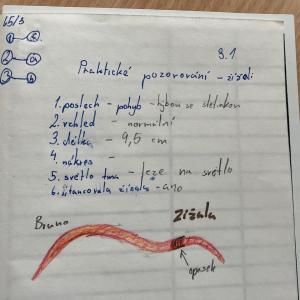 65/3
1 - c.
2 - a
3 - b
9.1
Praktické pozorování - žížali
1. poslech - pohyb - hýbou se
2. vzhled - normální
3. délka - 9,5 cm
4. nákres -
5. světlo tma - leze na světlo
6. žížala - ano
Bruno
Žížala
opasek